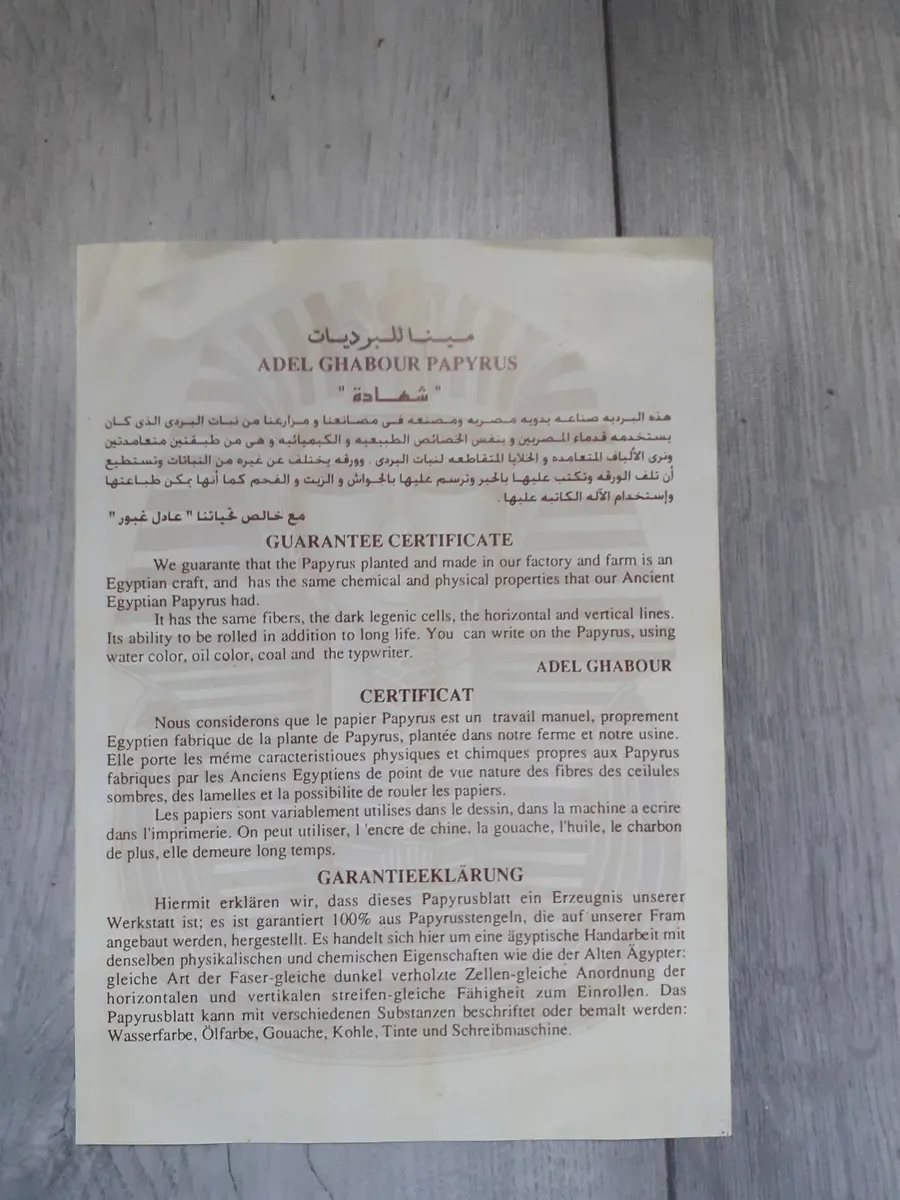 مينا للبرديات
ADEL GHABOUR PAPYRUS
" شهادة "
هذه البرديه صناعه يدويه مصريه ومصنعه فى مصانعنا و مزارعنا من نبات البردى الذى كان
يستخدمه قدماء المصريين و بنفس الخصائص الطبيعيه و الكيميائيه و هى من طبقتين متعامدتين
وترى الألياف المتعامده و الخلايا المتقاطعه لنبات البردى . وورقه يختلف عن غيره من النباتات وتستطيع
أن تلف الورقه وتكتب عليها بالحبر وترسم عليها بالجواش و الزيت و الفحم كما أنها يمكن طباعتها
وإستخدام الآله الكاتبه عليها .
مع خالص تحياتنا " عادل غبور "
GUARANTEE CERTIFICATE
We guarante that the Papyrus planted and made in our factory and farm is an
Egyptian craft, and has the same chemical and physical properties that our Ancient
Egyptian Papyrus had.
It has the same fibers, the dark legenic cells, the horizontal and vertical lines.
Its ability to be rolled in addition to long life. You can write on the Papyrus, using
water color, oil color, coal and the typwriter.
ADEL GHABOUR
CERTIFICAT
Nous considerons que le papier Papyrus est un travail manuel, proprement
Egyptien fabrique de la plante de Papyrus, plantée dans notre ferme et notre usine.
Elle porte les méme caracteristioues physiques et chimques propres aux Papyrus
fabriques par les Anciens Egyptiens de point de vue nature des fibres des ceilules
sombres, des lamelles et la possibilite de rouler les papiers.
Les papiers sont variablement utilises dans le dessin, dans la machine a ecrire
dans l'imprimerie. On peut utiliser, l 'encre de chine. la gouache, l'huile, le charbon
de plus, elle demeure long temps.
GARANTIEEKLÄRUNG
Hiermit erklären wir, dass dieses Papyrusblatt ein Erzeugnis unserer
Werkstatt ist; es ist garantiert 100% aus Papyrusstengeln, die auf unserer Fram
angebaut werden, hergestellt. Es handelt sich hier um eine ägyptische Handarbeit mit
denselben physikalischen und chemischen Eigenschaften wie die der Alten Ägypter:
gleiche Art der Faser-gleiche dunkel verholzte Zellen-gleiche Anordnung der
horizontalen und vertikalen streifen-gleiche Fähigheit zum Einrollen. Das
Papyrusblatt kann mit verschiedenen Substanzen beschriftet oder bemalt werden:
Wasserfarbe, Ölfarbe, Gouache, Kohle, Tinte und Schreibmaschine.